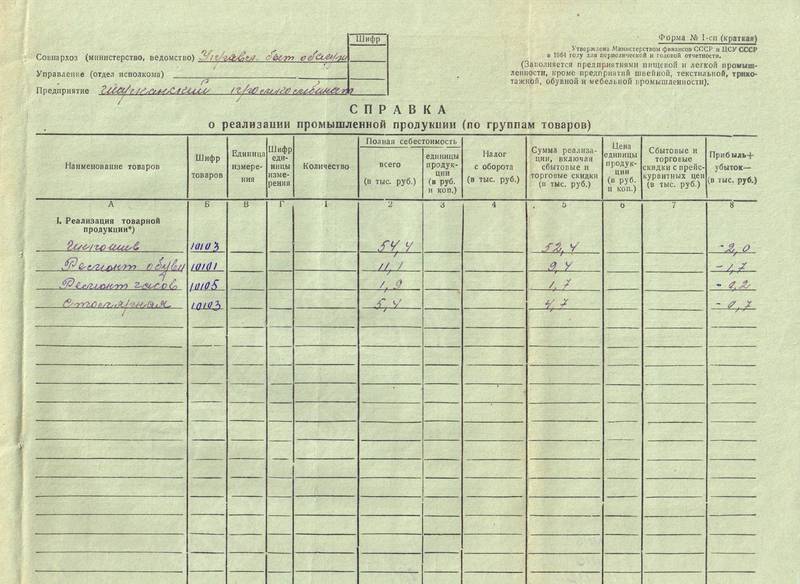 Шифр
Форма № 1-сп (краткая)
Утверждена Министерством финансов СССР и ЦСУ СССР
в 1964 году для периодической и годовой отчетности.
(Заполняется предприятиями пищевой и легкой промыш-
ленности, кроме предприятий швейной, текстильной, трико-
тажной, обувной и мебельной промышленности).
Совнархоз (министерство, ведомство) Управл. быт обслуж
Управление (отдел исполкома)
Предприятие Шарканский промкомбинат
СПРАВКА
о реализации промышленной продукции (по группам товаров)
Наименование товаров Шифр товаров Единица измере- ния Шифр еди- ницы изме- рения Количество Полная себестоимость всего (в тыс. руб.) единицы продук- ции (в руб. и коп.) Налог с оборота (в тыс. руб.) Сумма реализа- ции, включая сбытовые и торговые скидки (в тыс. руб.) Цена единицы продук- ции (в руб. и коп.) Сбытовые и торговые скидки с прейс- курантных цен (в тыс. руб.) Прибыль+ убыток— (в тыс. руб.)
А Б В Г 1 2 3 4 5 6 7 8
I. Реализация товарной
продукции*)
10103 54,4 52,4 -2,0
Ремонт обуви 10101 11,1 9,4 -1,7
Ремонт часов 10105 1,9 1,7 -0,2
Столярная 10103 5,4 4,7 -0,7